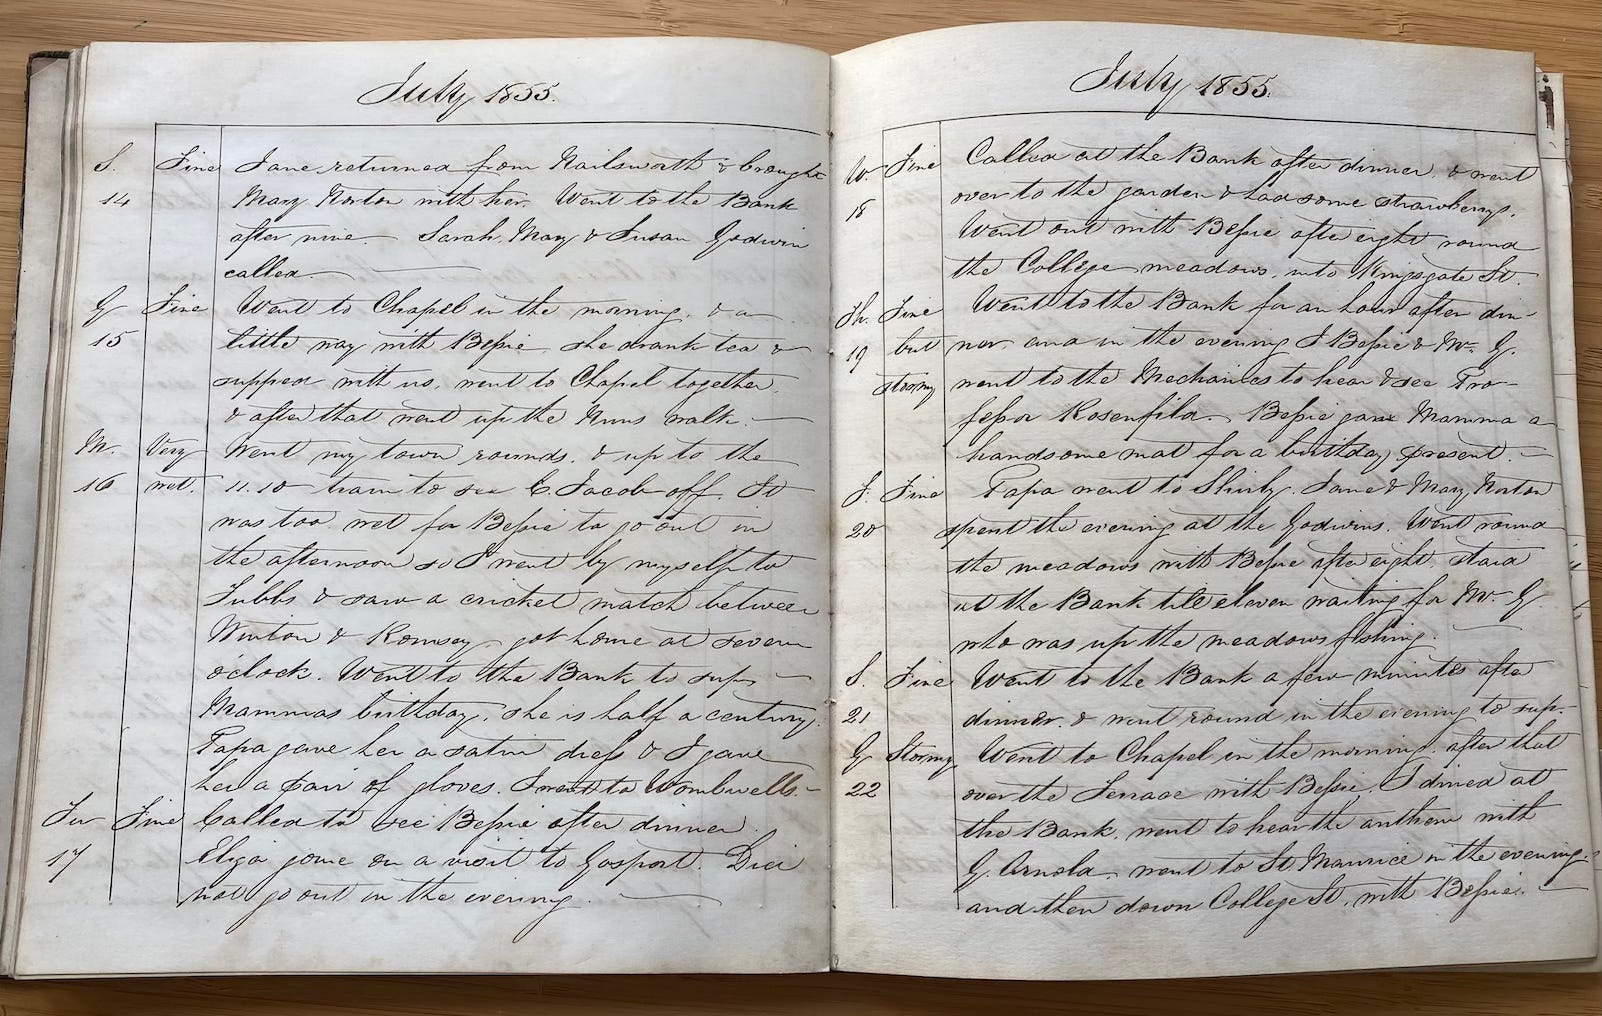 July 1855.
S. Fine Jane returned from Nailsworth & brought
14 Mary Norton with her. Went to the Bank
after nine. Sarah, Mary & Susan Godwin
called.
G Fine Went to Chapel in the morning. & a
15 little way with Bessie, she drank tea &
supped with us, went to Chapel together,
& after that went up the Nuns walk.
M. Very Went my town rounds. & up to the
16 wet. 11.10 train to see C. Jacob off. It
was too wet for Bessie to go out in
the afternoon so I went by myself to
Tubbs & saw a cricket match between
Winton & Romsey, got home at seven
o'clock. Went to the Bank to sup,
Mammas birthday, she is half a century.
Papa gave her a satin dress & I gave
her a pair of gloves. I went to Wombwells.
Tu Fine Called to see Bessie after dinner.
17 Eliza gone on a visit to Gosport. Did
not go out in the evening.
July 1855.
W. Fine Called at the Bank after dinner, & went
18 over to the garden & had some strawberrys.
Went out with Bessie after eight round
the College meadows, into Kingsgate St.
Th. Fine Went to the Bank for an hour after din-
19 but ner, and in the evening I Bessie & Mr. G.
stormy went to the Mechanics to hear & see Pro-
fessor Rosenfild. Bessie gave Mamma a
handsome mat for a birthday present.
F. Fine Papa went to Shirly. Jane & Mary Norton
20 spent the evening at the Godwins. Went round
the meadows with Bessie after eight, staid
at the Bank till eleven waiting for Mr. G.
who was up the meadows fishing.
S. Fine Went to the Bank a few minutes after
21 dinner, & went round in the evening to sup.
G Stormy Went to Chapel in the morning, after that
22 over the Terrace with Bessie. I dined at
the Bank, went to hear the anthem with
G. Arnold, went to St Maurice in the evening.
and then down College St, with Bessie.